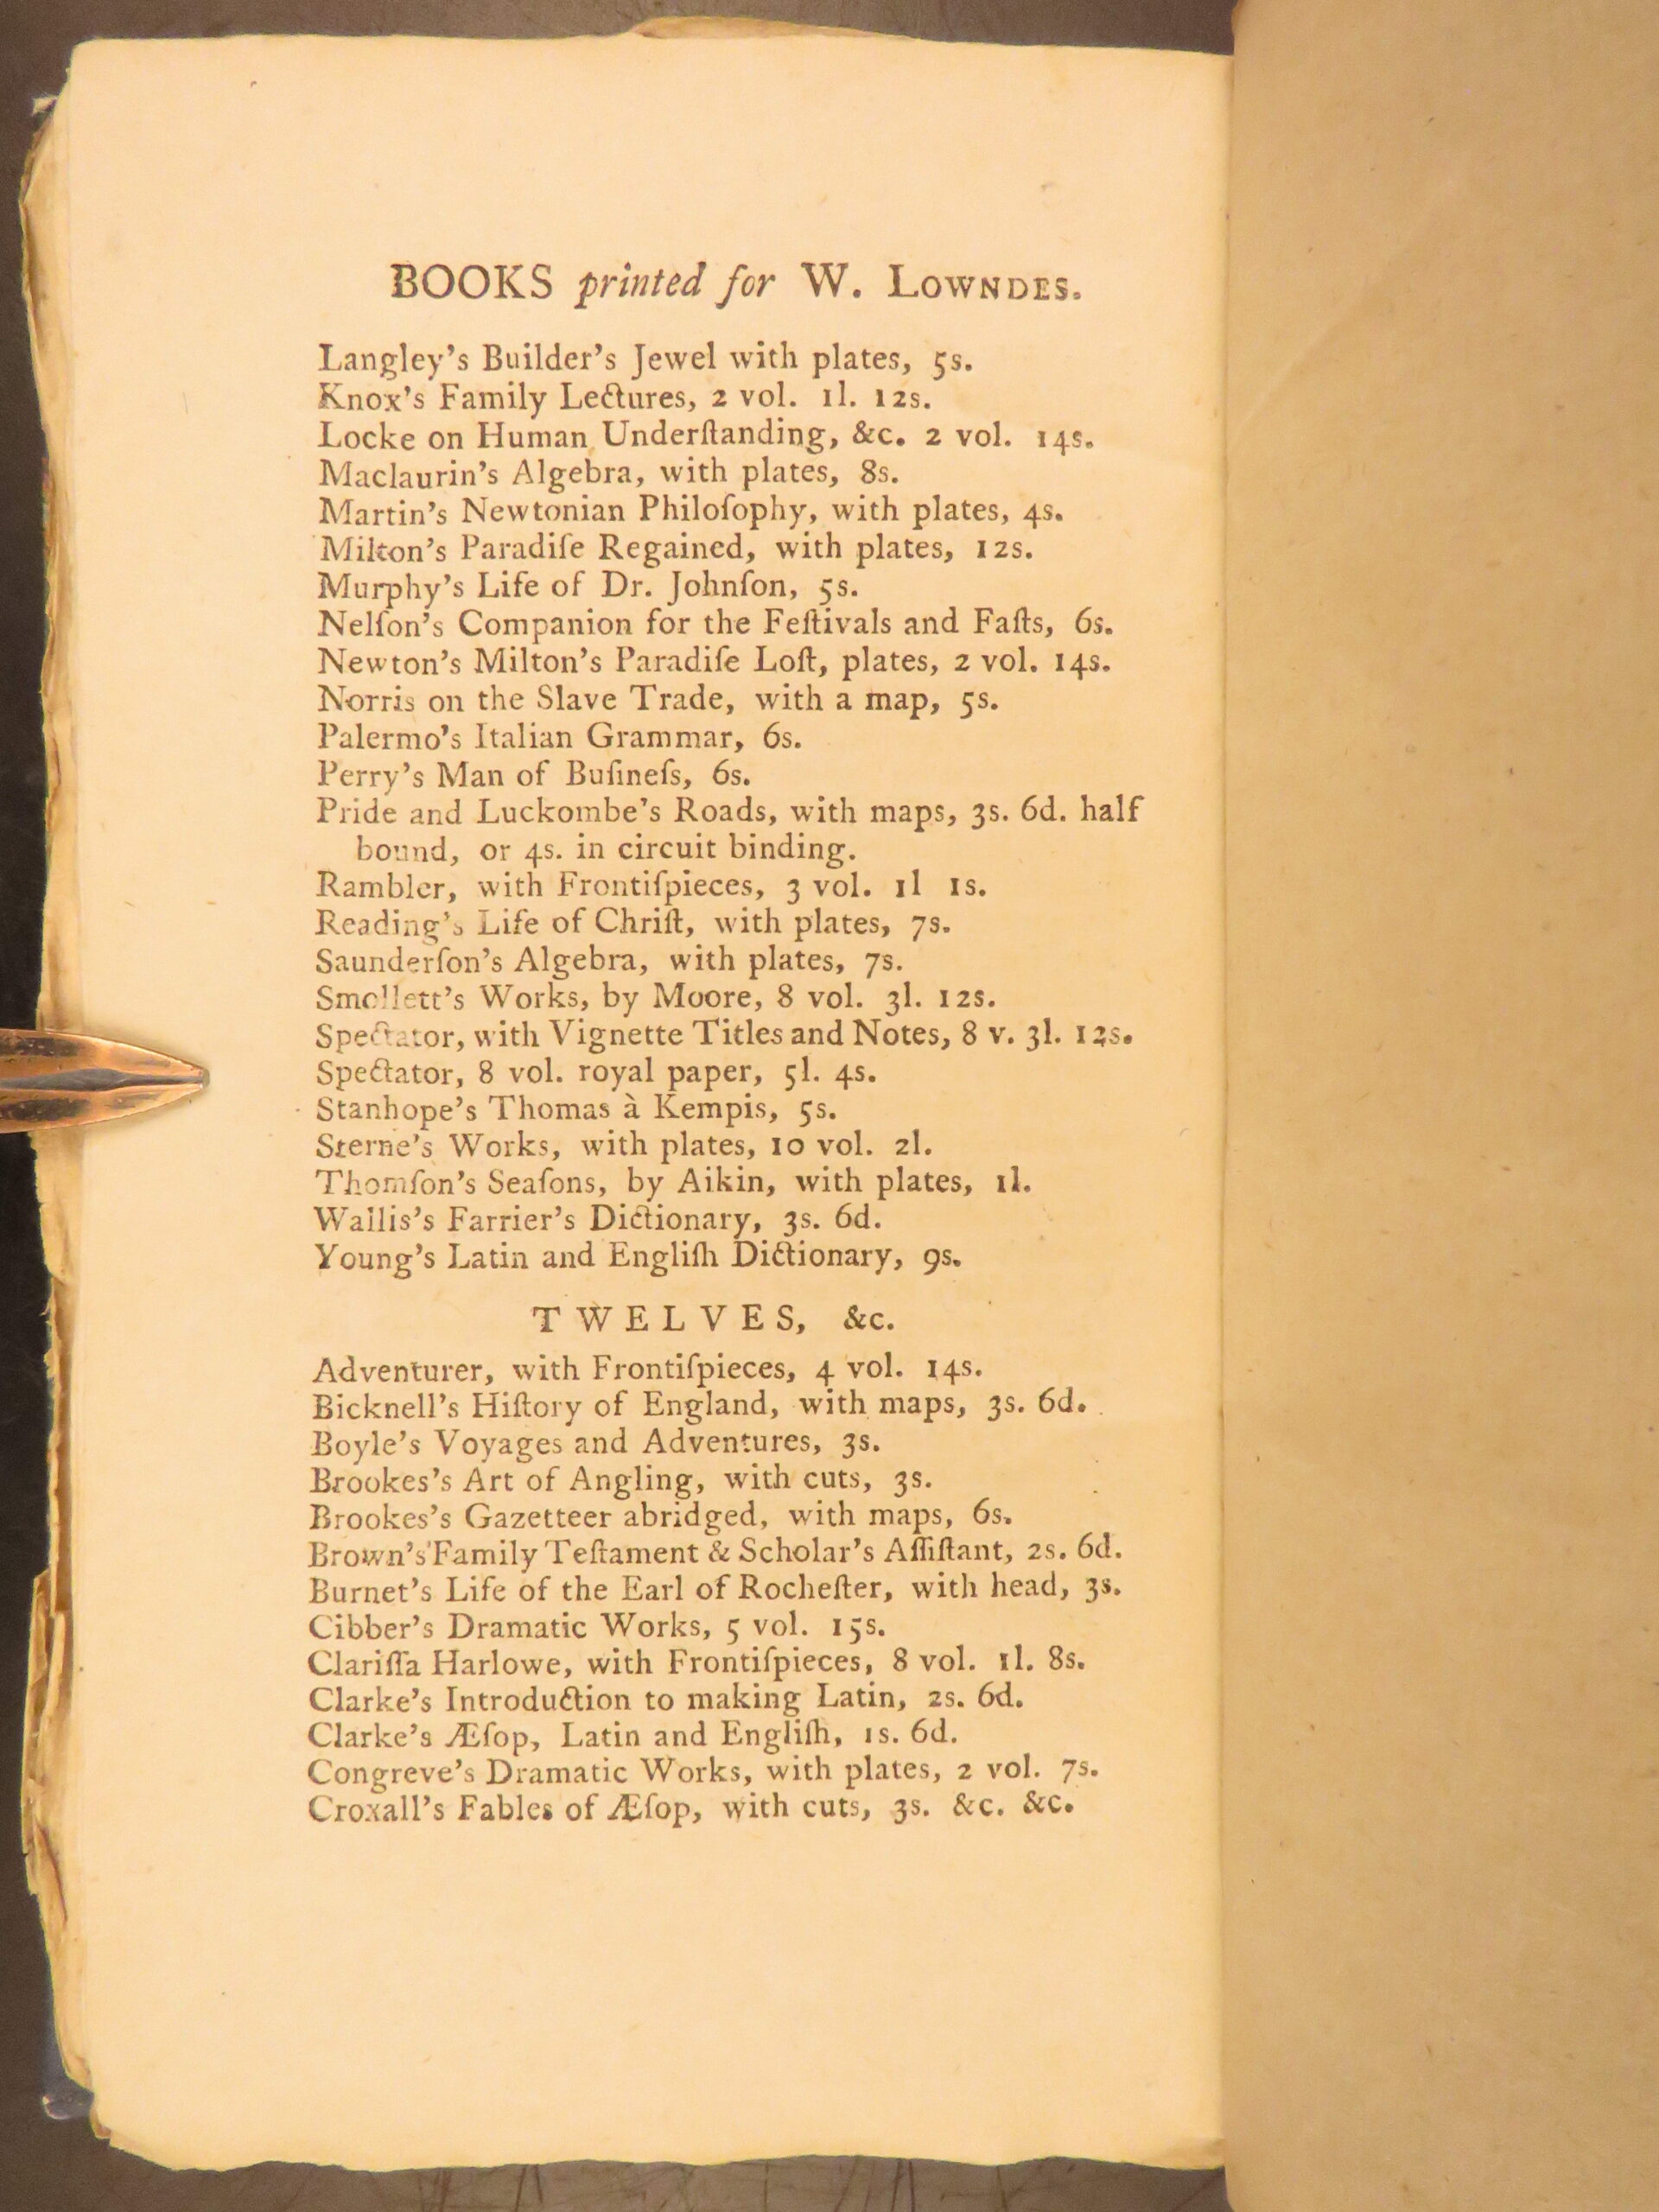 BOOKS printed for W. LOWNDES.
Langley's Builder's Jewel with plates, 5s.
Knox's Family Lectures, 2 vol. 1l. 12s.
Locke on Human Underſtanding, &c. 2 vol. 14s.
Maclaurin's Algebra, with plates, 8s.
Martin's Newtonian Philoſophy, with plates, 4s.
Milton's Paradiſe Regained, with plates, 12s.
Murphy's Life of Dr. Johnſon, 5s.
Nelſon's Companion for the Feſtivals and Faſts, 6s.
Newton's Milton's Paradiſe Loſt, plates, 2 vol. 14s.
Norris on the Slave Trade, with a map, 5s.
Palermo's Italian Grammar, 6s.
Perry's Man of Buſineſs, 6s.
Pride and Luckombe's Roads, with maps, 3s. 6d. half
bound, or 4s. in circuit binding.
Rambler, with Frontiſpieces, 3 vol. 1l 1s.
Reading's Life of Chriſt, with plates, 7s.
Saunderſon's Algebra, with plates, 7s.
Smollett's Works, by Moore, 8 vol. 3l. 12s.
Spectator, with Vignette Titles and Notes, 8 v. 3l. 12s.
Spectator, 8 vol. royal paper, 5l. 4s.
Stanhope's Thomas à Kempis, 5s.
Sterne's Works, with plates, 10 vol. 2l.
Thomſon's Seaſons, by Aikin, with plates, 1l.
Wallis's Farrier's Dictionary, 3s. 6d.
Young's Latin and Engliſh Dictionary, 9s.
TWELVES, &c.
Adventurer, with Frontiſpieces, 4 vol. 14s.
Bicknell's Hiſtory of England, with maps, 3s. 6d.
Boyle's Voyages and Adventures, 3s.
Brookes's Art of Angling, with cuts, 3s.
Brookes's Gazetteer abridged, with maps, 6s.
Brown's Family Teſtament & Scholar's Aſſiſtant, 2s. 6d.
Burnet's Life of the Earl of Rocheſter, with head, 3s.
Cibber's Dramatic Works, 5 vol. 15s.
Clariſſa Harlowe, with Frontiſpieces, 8 vol. 1l. 8s.
Clarke's Introduction to making Latin, 2s. 6d.
Clarke's Æſop, Latin and Engliſh, 1s. 6d.
Congreve's Dramatic Works, with plates, 2 vol. 7s.
Croxall's Fables of Æſop, with cuts, 3s. &c. &c.